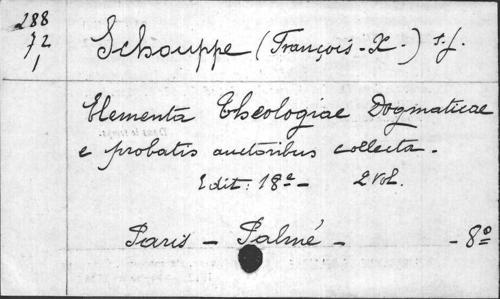 288
72
1
Schouppe (François-X.) s.j.
Elementa Theologiae Dogmaticae
e probatis auctoribus collecta.
Edit: 18e - 2 vol.
Paris - Palmé - - 8º